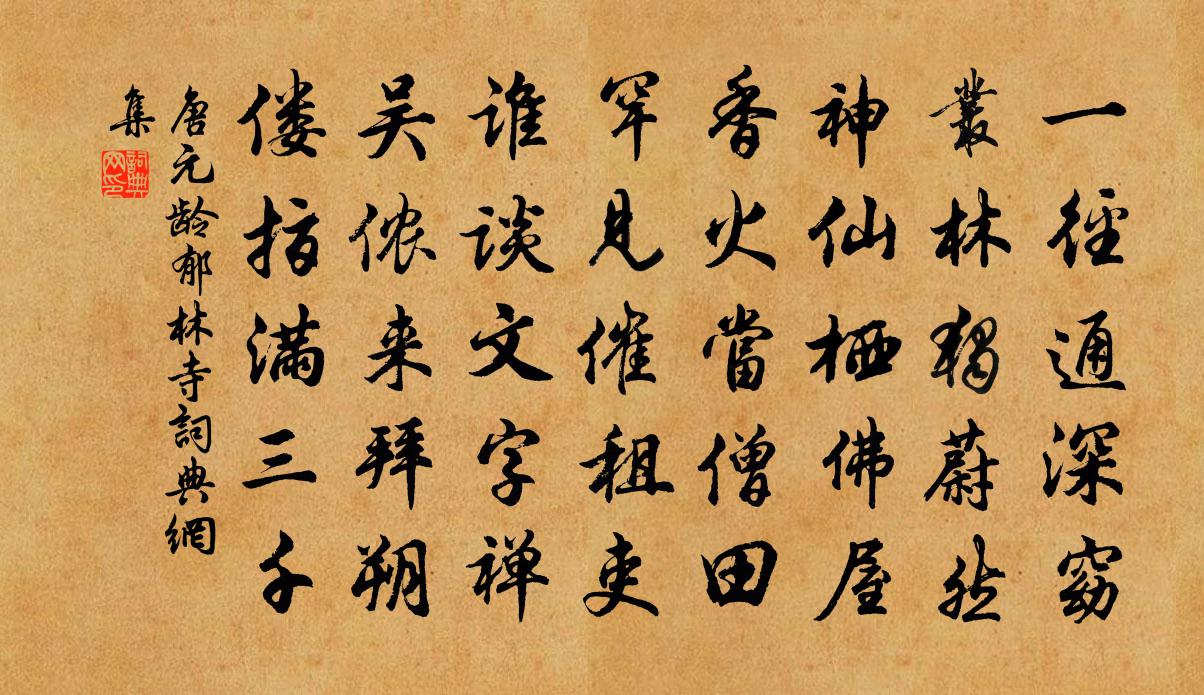 一徑通深窈
叢林獨蔚然
神仙栖佛屋
香火當僧田
罕見催租吏
谁談文字禅
吴侬来拜朔
偻指满三千
唐元龄郁林寺詞典網
集
詞典网印